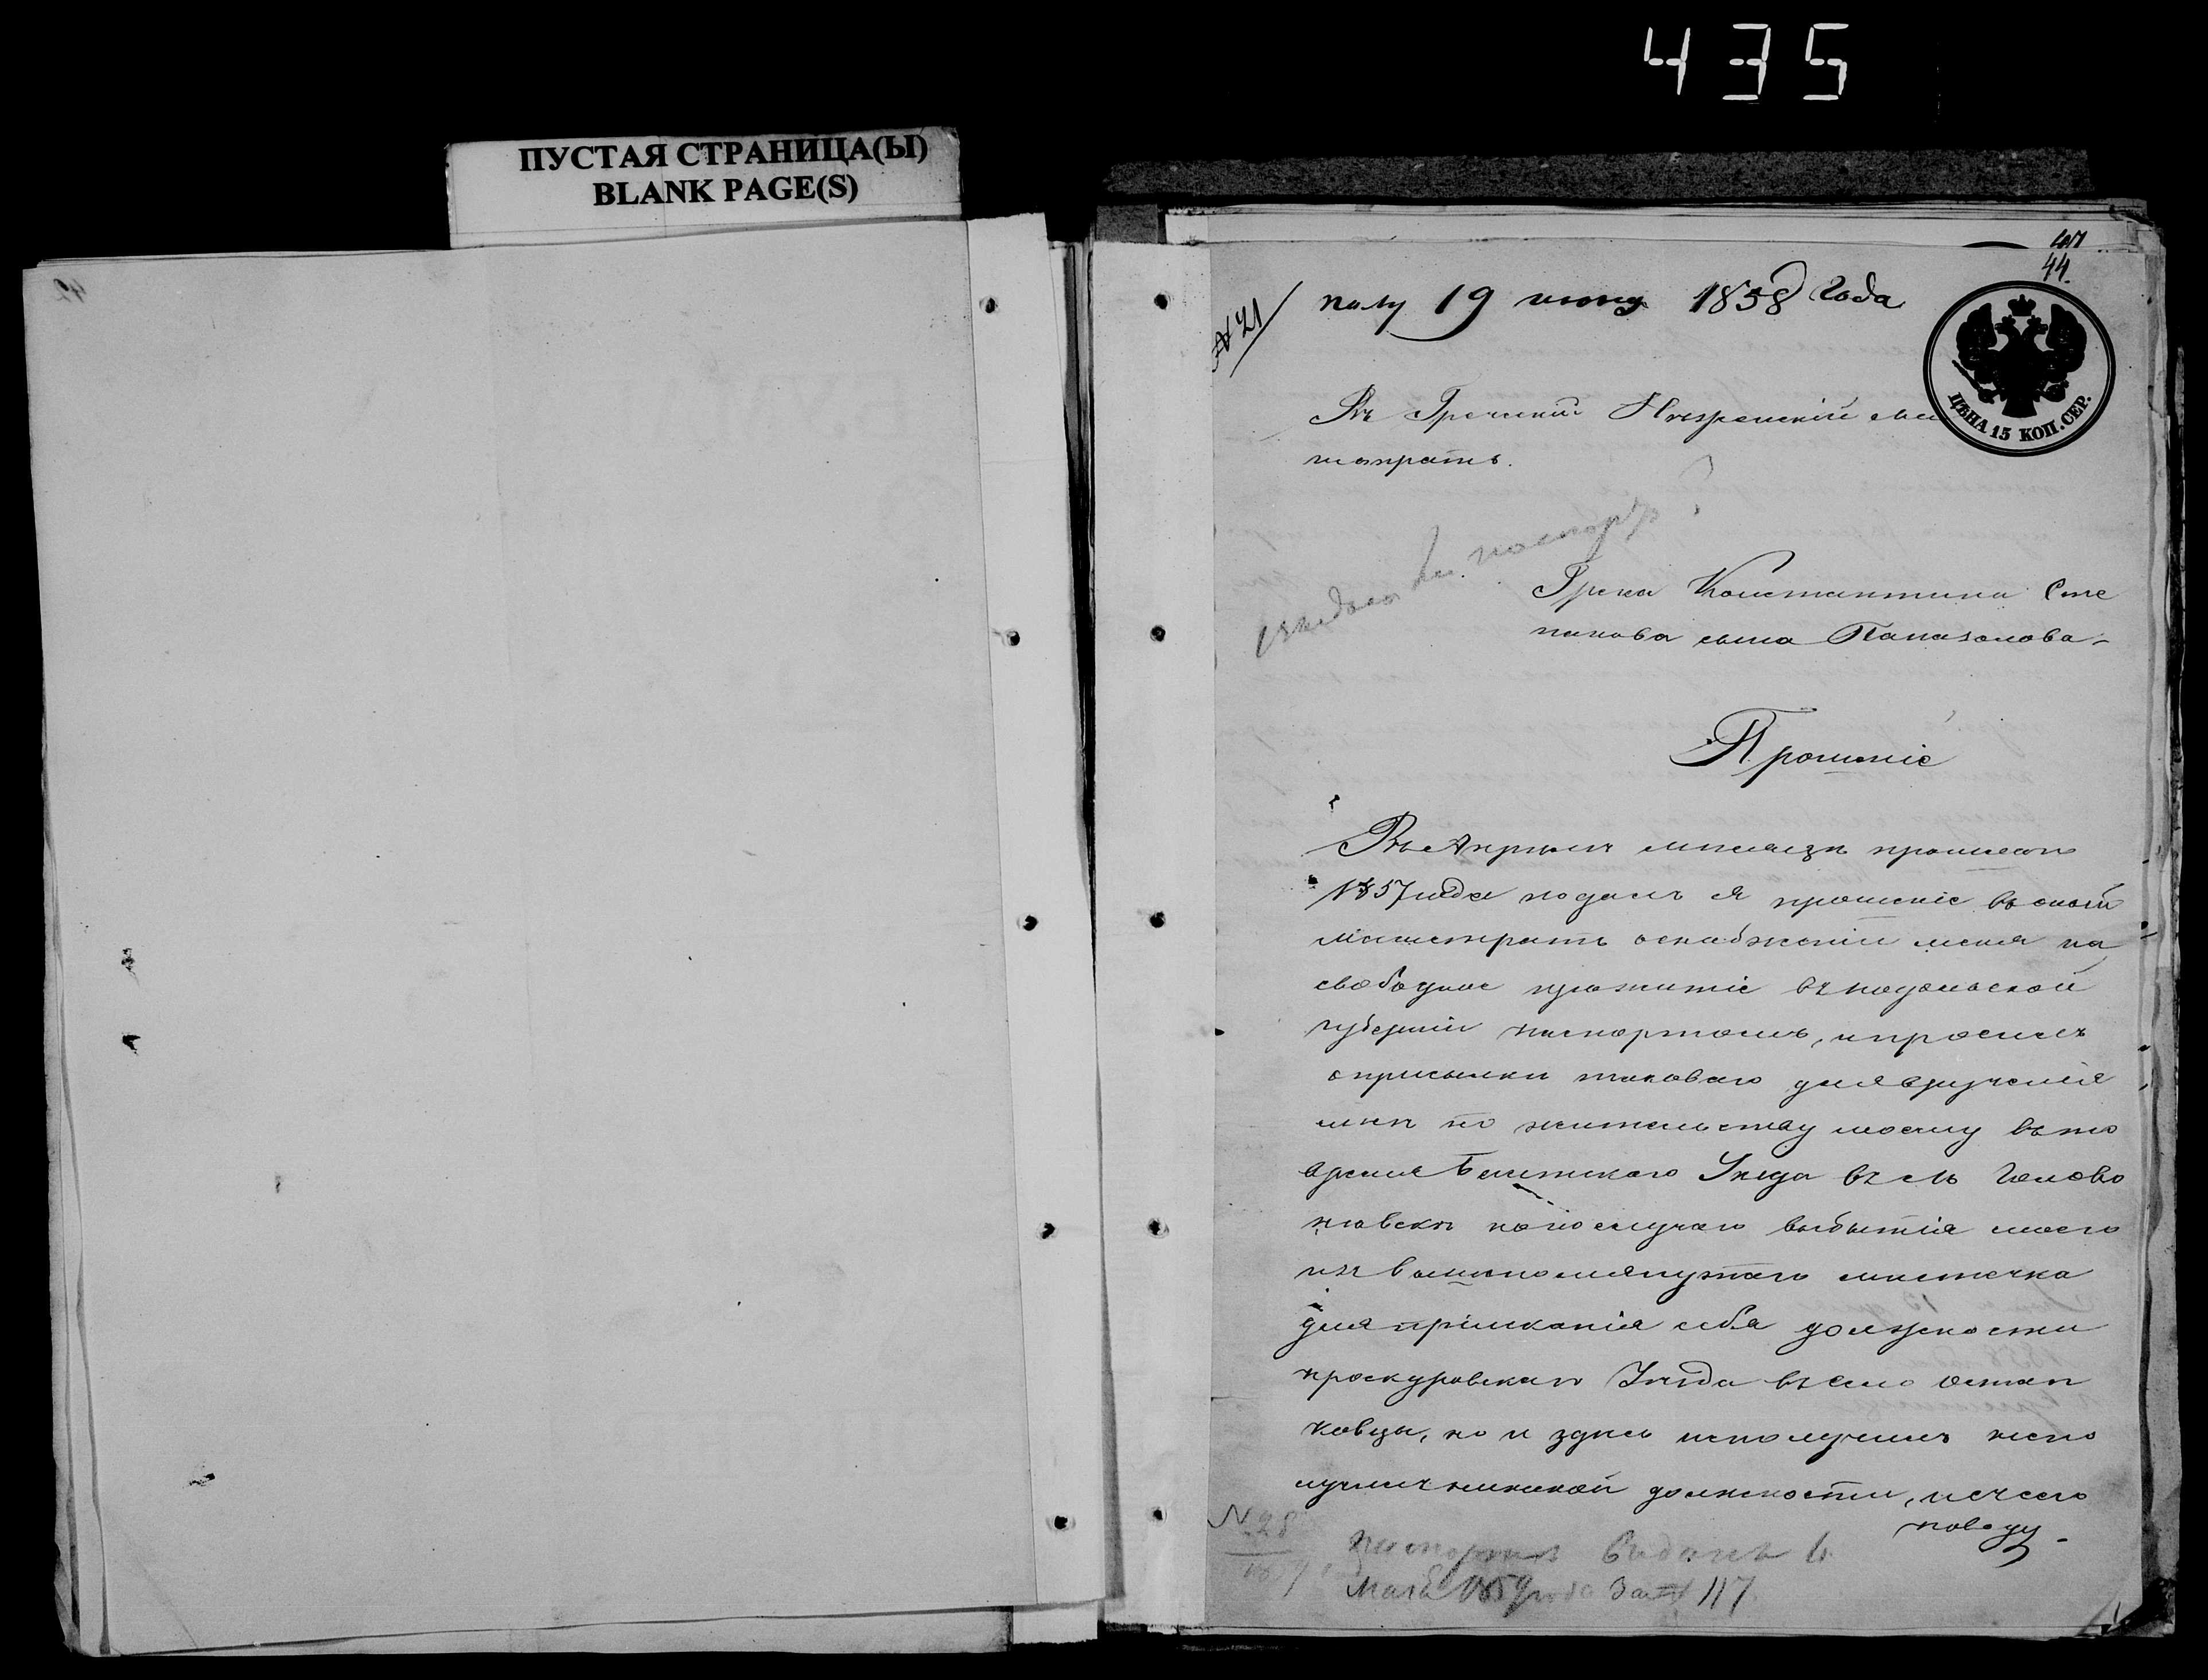 435
ПУСТАЯ СТРАНИЦА(Ы)
BLANK PAGE(S)
44.
№ 21
полу 19 июня 1858 Года
ЦѢНА 15 КОП. СЕР.
Въ Греческий Нѣжинскій маг
истратъ.
Грека Константина Сте
панова сына Папазолова
Прошеніе
Въ Апрѣлѣ мѣсяцѣ прошлаго
1857 года подалъ я прошеніе въ оный
магистратъ о снабженіи меня на
свободное прожитіе въ подольской
губерніи паспортомъ, и просилъ
о присылки таковаго для врученія
мнѣ по жительству моему въ то
время Балтскаго Уѣзда въ мь Голово
невскѣ но по случаю выбытія моего
изъ вышепомянутаго мѣстечка
для пріисканія себѣ должности
проскуровскаго Уѣзда въ село Остап
ковцы, но и здѣсь не получилъ
должности, и съ сего
поводу
№ 28
паспортъ виданъ 6
Мая 1859 года За № 117